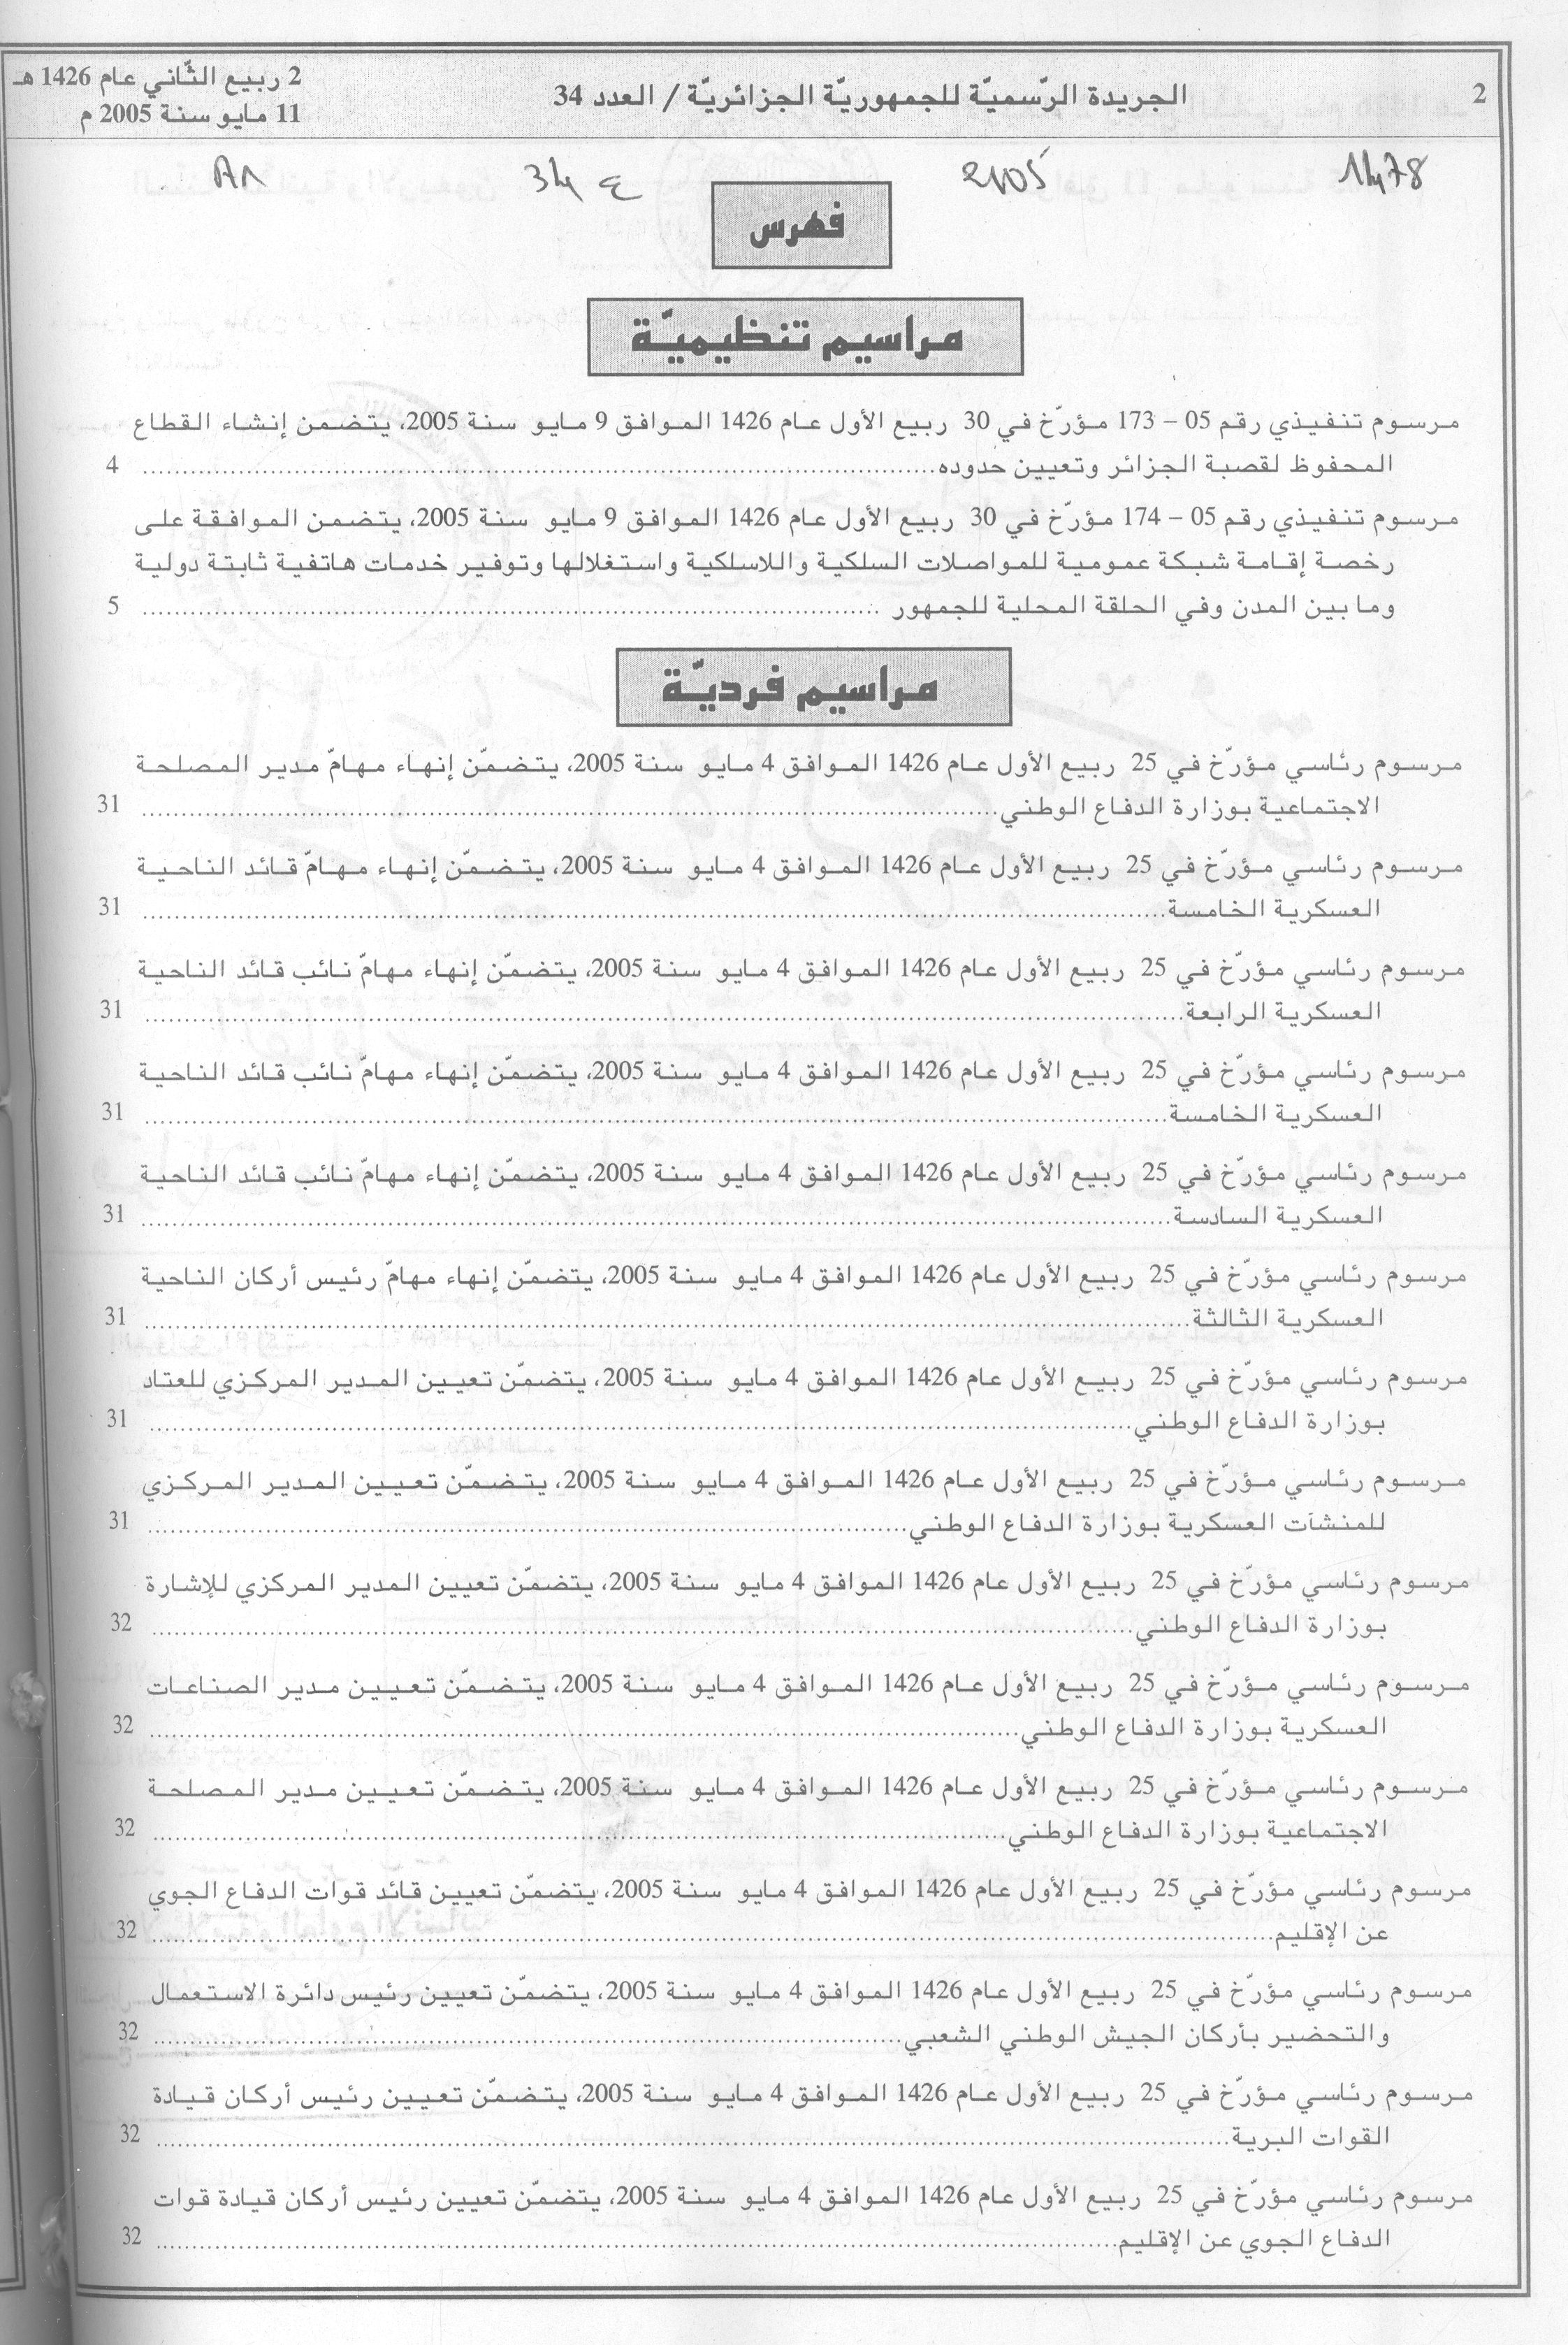 2
الجريدة الرّسميّة للجمهوريّة الجزائريّة / العدد 34
2 ربيع الثّاني عام 1426 هـ
11 مايو سنة 2005 م
1478 2005 ع 34
فهرس
مراسيم تنظيميّة
مرسوم تنفيذي رقم 05 – 173 مؤرّخ في 30 ربيع الأول عام 1426 الموافق 9 مايو سنة 2005، يتضمن إنشاء القطاع
المحفوظ لقصبة الجزائر وتعيين حدوده 4
مرسوم تنفيذي رقم 05 – 174 مؤرّخ في 30 ربيع الأول عام 1426 الموافق 9 مايو سنة 2005، يتضمن الموافقة على
رخصة إقامة شبكة عمومية للمواصلات السلكية واللاسلكية واستغلالها وتوفير خدمات هاتفية ثابتة دولية
وما بين المدن وفي الحلقة المحلية للجمهور 5
مراسيم فرديّة
مرسوم رئاسي مؤرّخ في 25 ربيع الأول عام 1426 الموافق 4 مايو سنة 2005، يتضمّن إنهاء مهامّ مدير المصلحة
الاجتماعية بوزارة الدفاع الوطني 31
مرسوم رئاسي مؤرّخ في 25 ربيع الأول عام 1426 الموافق 4 مايو سنة 2005، يتضمّن إنهاء مهامّ قائد الناحية
العسكرية الخامسة 31
مرسوم رئاسي مؤرّخ في 25 ربيع الأول عام 1426 الموافق 4 مايو سنة 2005، يتضمّن إنهاء مهامّ نائب قائد الناحية
العسكرية الرابعة 31
مرسوم رئاسي مؤرّخ في 25 ربيع الأول عام 1426 الموافق 4 مايو سنة 2005، يتضمّن إنهاء مهامّ نائب قائد الناحية
العسكرية الخامسة 31
مرسوم رئاسي مؤرّخ في 25 ربيع الأول عام 1426 الموافق 4 مايو سنة 2005، يتضمّن إنهاء مهامّ نائب قائد الناحية
العسكرية السادسة 31
مرسوم رئاسي مؤرّخ في 25 ربيع الأول عام 1426 الموافق 4 مايو سنة 2005، يتضمّن إنهاء مهامّ رئيس أركان الناحية
العسكرية الثالثة 31
مرسوم رئاسي مؤرّخ في 25 ربيع الأول عام 1426 الموافق 4 مايو سنة 2005، يتضمّن تعيين المدير المركزي للعتاد
بوزارة الدفاع الوطني 31
مرسوم رئاسي مؤرّخ في 25 ربيع الأول عام 1426 الموافق 4 مايو سنة 2005، يتضمّن تعيين المدير المركزي
للمنشآت العسكرية بوزارة الدفاع الوطني 31
مرسوم رئاسي مؤرّخ في 25 ربيع الأول عام 1426 الموافق 4 مايو سنة 2005، يتضمّن تعيين المدير المركزي للإشارة
بوزارة الدفاع الوطني 32
مرسوم رئاسي مؤرّخ في 25 ربيع الأول عام 1426 الموافق 4 مايو سنة 2005، يتضمّن تعيين مدير الصناعات
العسكرية بوزارة الدفاع الوطني 32
مرسوم رئاسي مؤرّخ في 25 ربيع الأول عام 1426 الموافق 4 مايو سنة 2005، يتضمّن تعيين مدير المصلحة
الاجتماعية بوزارة الدفاع الوطني 32
مرسوم رئاسي مؤرّخ في 25 ربيع الأول عام 1426 الموافق 4 مايو سنة 2005، يتضمّن تعيين قائد قوات الدفاع الجوي
عن الإقليم 32
مرسوم رئاسي مؤرّخ في 25 ربيع الأول عام 1426 الموافق 4 مايو سنة 2005، يتضمّن تعيين رئيس دائرة الاستعمال
والتحضير بأركان الجيش الوطني الشعبي 32
مرسوم رئاسي مؤرّخ في 25 ربيع الأول عام 1426 الموافق 4 مايو سنة 2005، يتضمّن تعيين رئيس أركان قيادة
القوات البرية 32
مرسوم رئاسي مؤرّخ في 25 ربيع الأول عام 1426 الموافق 4 مايو سنة 2005، يتضمّن تعيين رئيس أركان قيادة قوات
الدفاع الجوي عن الإقليم 32